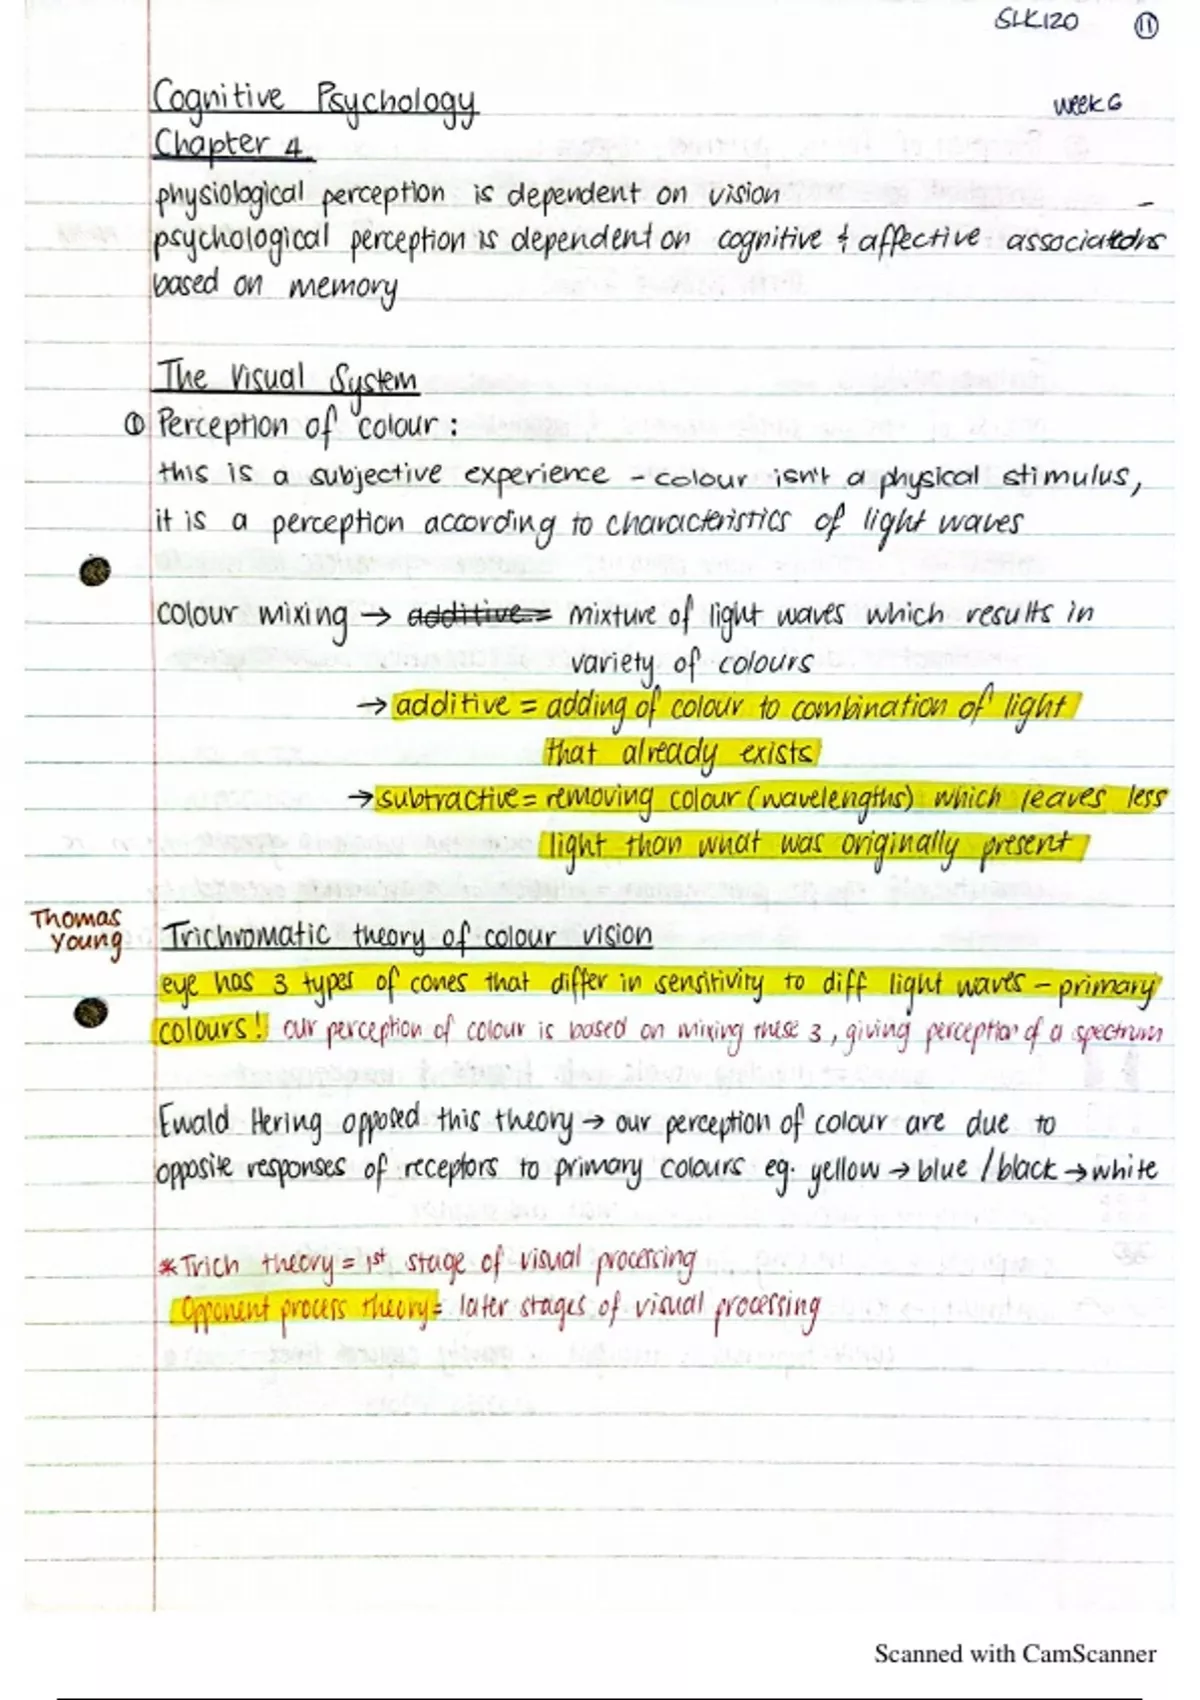 SLK120 11
Cognitive Psychology
Week 6
Chapter 4
physiological perception is dependent on vision -
psychological perception is dependent on cognitive & affective associations
based on memory
The Visual System
① Perception of colour:
this is a subjective experience - colour isn't a physical stimulus,
it is a perception according to characteristics of light waves
colour mixing → additive = mixture of light waves which results in
variety of colours
→ additive = adding of colour to combination of light
that already exists
→ subtractive = removing colour (wavelengths) which leaves less
light than what was originally present
Thomas
Young
Trichromatic theory of colour vision
eye has 3 types of cones that differ in sensitivity to diff light waves - primary
colours! our perception of colour is based on mixing these 3, giving perception of a spectrum
Ewald Hering opposed this theory → our perception of colour are due to
opposite responses of receptors to primary colours eg. yellow → blue / black → white
* Trich theory = 1st stage of visual processing
Opponent process theory = later stages of visual processing
Scanned with CamScanner